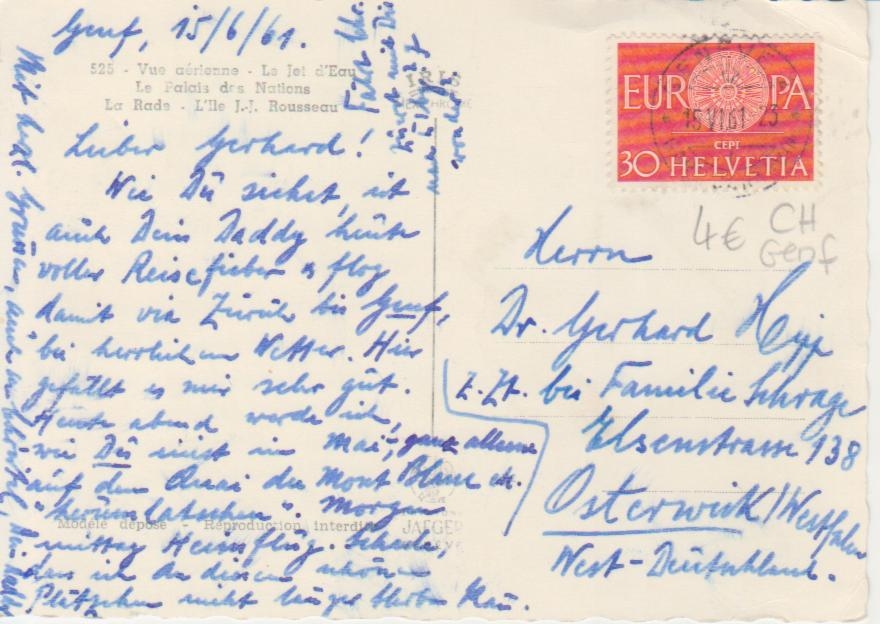 Genf, 15/6/61.
525 - Vue aérienne - Le Jet d'Eau
Le Palais des Nations
La Rade - L'Ile J.-J. Rousseau
IRIS
Lieber Gerhard!
Wie Du siehst, ist
auch Dein Daddy heute
voller Reisefieber & flog
damit via Zürich bis Genf,
bei herrlichem Wetter. Hier
gefällt es mir sehr gut.
Heute abend werde ich,
wie Du einst im Mai, ganz alleine
auf dem Quai du Mont Blanc etc.
"herumlatschen". Morgen
mittag Heimflug. Schade,
dass ich an diesem schönen
Plätzchen nicht länger bleiben kann.
Mit herzl. Grüssen, auch an
Modèle déposé - Réproduction interdite
JAEGER
EUROPA
CEPT
30 HELVETIA
15.VI.61 23
4€
CH
Genf
Herrn
Dr. Gerhard Hipp
z. Zt. bei Familie Schrage
Elsenstrasse 138
Osterwick/Westfalen
West-Deutschland.